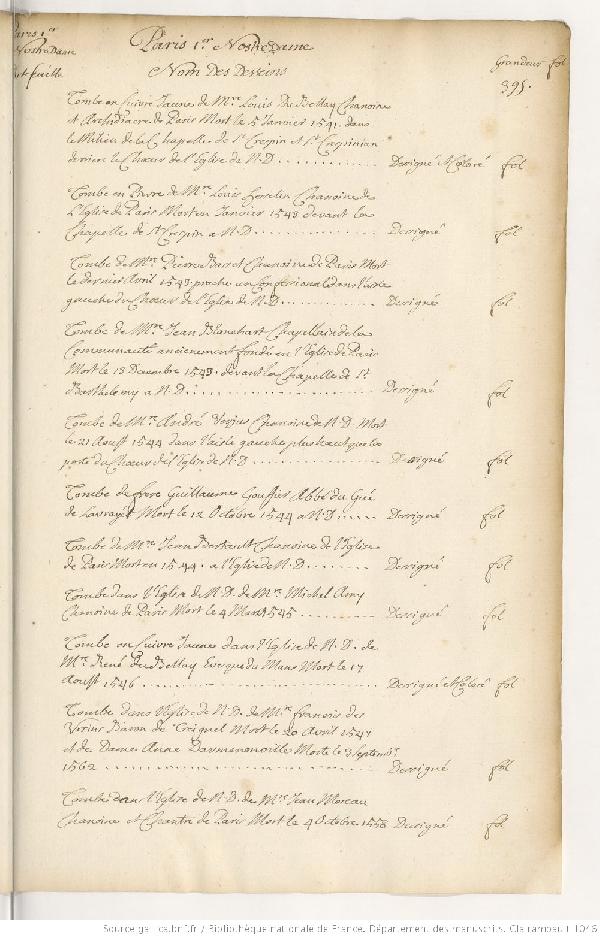 Paris 1er
Nostre Dame
Paris 1er Nostre Dame
Nom Des Desseins
Grandeur fol
395.
Tombe en Cuivre Jaune de Mre Louis Du Bellay Chanoine
et Archidiacre de Paris Mort le 5 Janvier 1541. dans
le Milieu de la Chapelle de St Crespin et St Crepinian
derriere le Chœur de l'Eglise de N.D. .......... Dessigné et Coloré fol
Tombe en Pierre de Mre Louis Chanoine de
l'Eglise de Paris Mort en Janvier 1543 devant la
Chapelle de St Crespin a N.D. .......... Dessigné fol
Tombe de Mre Pierre Chanoine de Paris Mort
le dernier Avril 1543 proche un Confessional dans l'aisle
gauche du Chœur de l'Eglise de N.D. .......... Dessigné fol
Tombe de Mre Jean Blanchart Chapellain de la
Communauté anciennement fondée en l'Eglise de Paris
Mort le 13 Decembre 1543. devant la Chapelle de St
Barthelemy a N.D. .......... Dessigné fol
Tombe de Mre André Verjus Chanoine de N.D. Mort
le 21 Aoust 1544 dans l'aisle gauche plus haut que la
porte du Chœur de l'Eglise de N.D. .......... Dessigné fol
Tombe de frere Guillaume Gouffier Abbé du Gué
de Mort le 12 Octobre 1544 a N.D. ..... Dessigné fol
Tombe de Mre Jean Berthault Chanoine de l'Eglise
de Paris Mort en 1544. a l'Eglise de N.D. ....... Dessigné fol
Tombe dans l'Eglise de N.D. de Mre Michel
Chanoine de Paris Mort le 4 Mars 1545 ....... Dessigné fol
Tombe en Cuivre Jaune dans l'Eglise de N.D. de
Mre René du Bellay Evesque du Mans Mort le 17
Aoust 1546 .......... Dessigné et Coloré fol
Tombe dans l'Eglise de N.D. de Mre François des
Baron de Mort le 20 Avril 1547
et de Dame Anne Morte le 3 Septembre
1562 .......... Dessigné fol
Tombe dans l'Eglise de N.D. de Mre Jean Moreau
Chanoine et Chantre de Paris Mort le 4 Octobre 1558 Dessigné fol
Source gallica.bnf.fr / Bibliothèque nationale de France. Département des manuscrits. Clairambault 1046